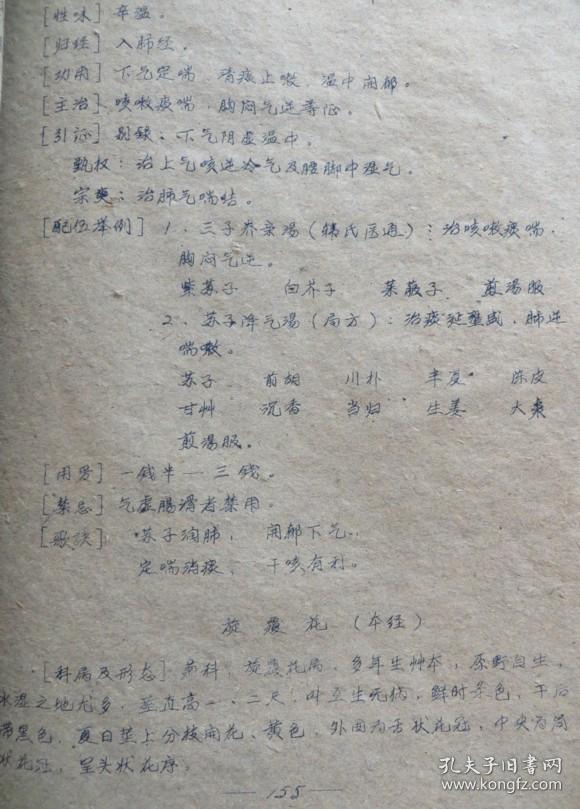 [性味] 辛温。
[归经] 入肺经。
[功用] 下气定喘,消痰止嗽,温中开郁。
[主治] 咳嗽痰喘,胸闷气逆等症。
[引证] 别录:下气除虚温中。
甄权:治上气咳逆冷气及腰脚中湿气。
宗奭:治肺气喘结。
[配伍举例] 1、三子养亲湯(韩氏医通):治咳嗽痰喘,
胸闷气逆。
紫苏子 白芥子 莱菔子 煎湯服
2、苏子降气湯(局方):治痰延壅盛,肺逆
喘嗽。
苏子 前胡 川朴 半夏 陈皮
甘艸 沉香 当归 生姜 大枣
煎湯服。
[用量] 一钱半—三钱。
[禁忌] 气虚腸滑者禁用。
[歌诀] 苏子润肺, 开郁下气,
定喘消痰, 干咳有利。
旋覆花(本经)
[科属及形态] 菊科,旋覆花属,多年生艸本,原野自生,
水湿之地尤多,茎直高一、二尺,叶互生无柄,鲜时 色,干后
带黑色,夏日茎上分枝開花,黄色,外围为舌状花冠,中央为筒
状花冠,呈头状花序。
—155—
孔夫子旧书网
www.kongfz.com